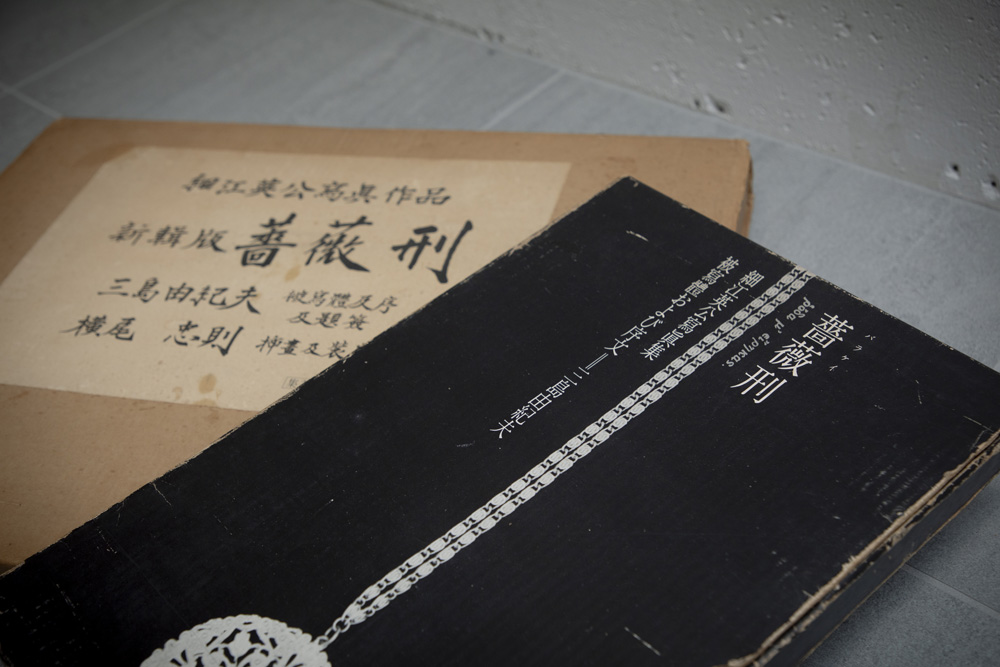 細江英公寫眞作品
新輯版 薔薇刑
三島由紀夫 被寫體及序
及題簽
横尾 忠則 挿畫及装
バラケイ
薔薇刑
細江英公寫眞集
被寫體および序文=三島由紀夫